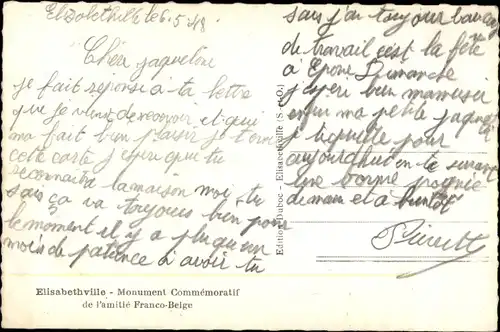 Elisabethville le 6.5.48
Cher jaqueline
je fait reponse a ta lettre
que je viens de recevoir et qui
ma fait bien plaisir je t'envoie
cette carte j'espere que tu
reconnaitra la maison moi tu
sais ça va toujours bien pour
le moment il y a plus qu'un
mois de patience à avoir tu
sais j'ai toujour
de travail c'est la fête
à Epone Dimanche
j'espere bien mamuser
enfin ma petite jaqueline
je te quitte pour
aujourdhui en te serrant
une bonne poignée
de main et à bientot
Pierrette
Edition Duboc - Elisabethville (S.-et-O.)
Elisabethville - Monument Commémoratif
de l'amitié Franco-Belge